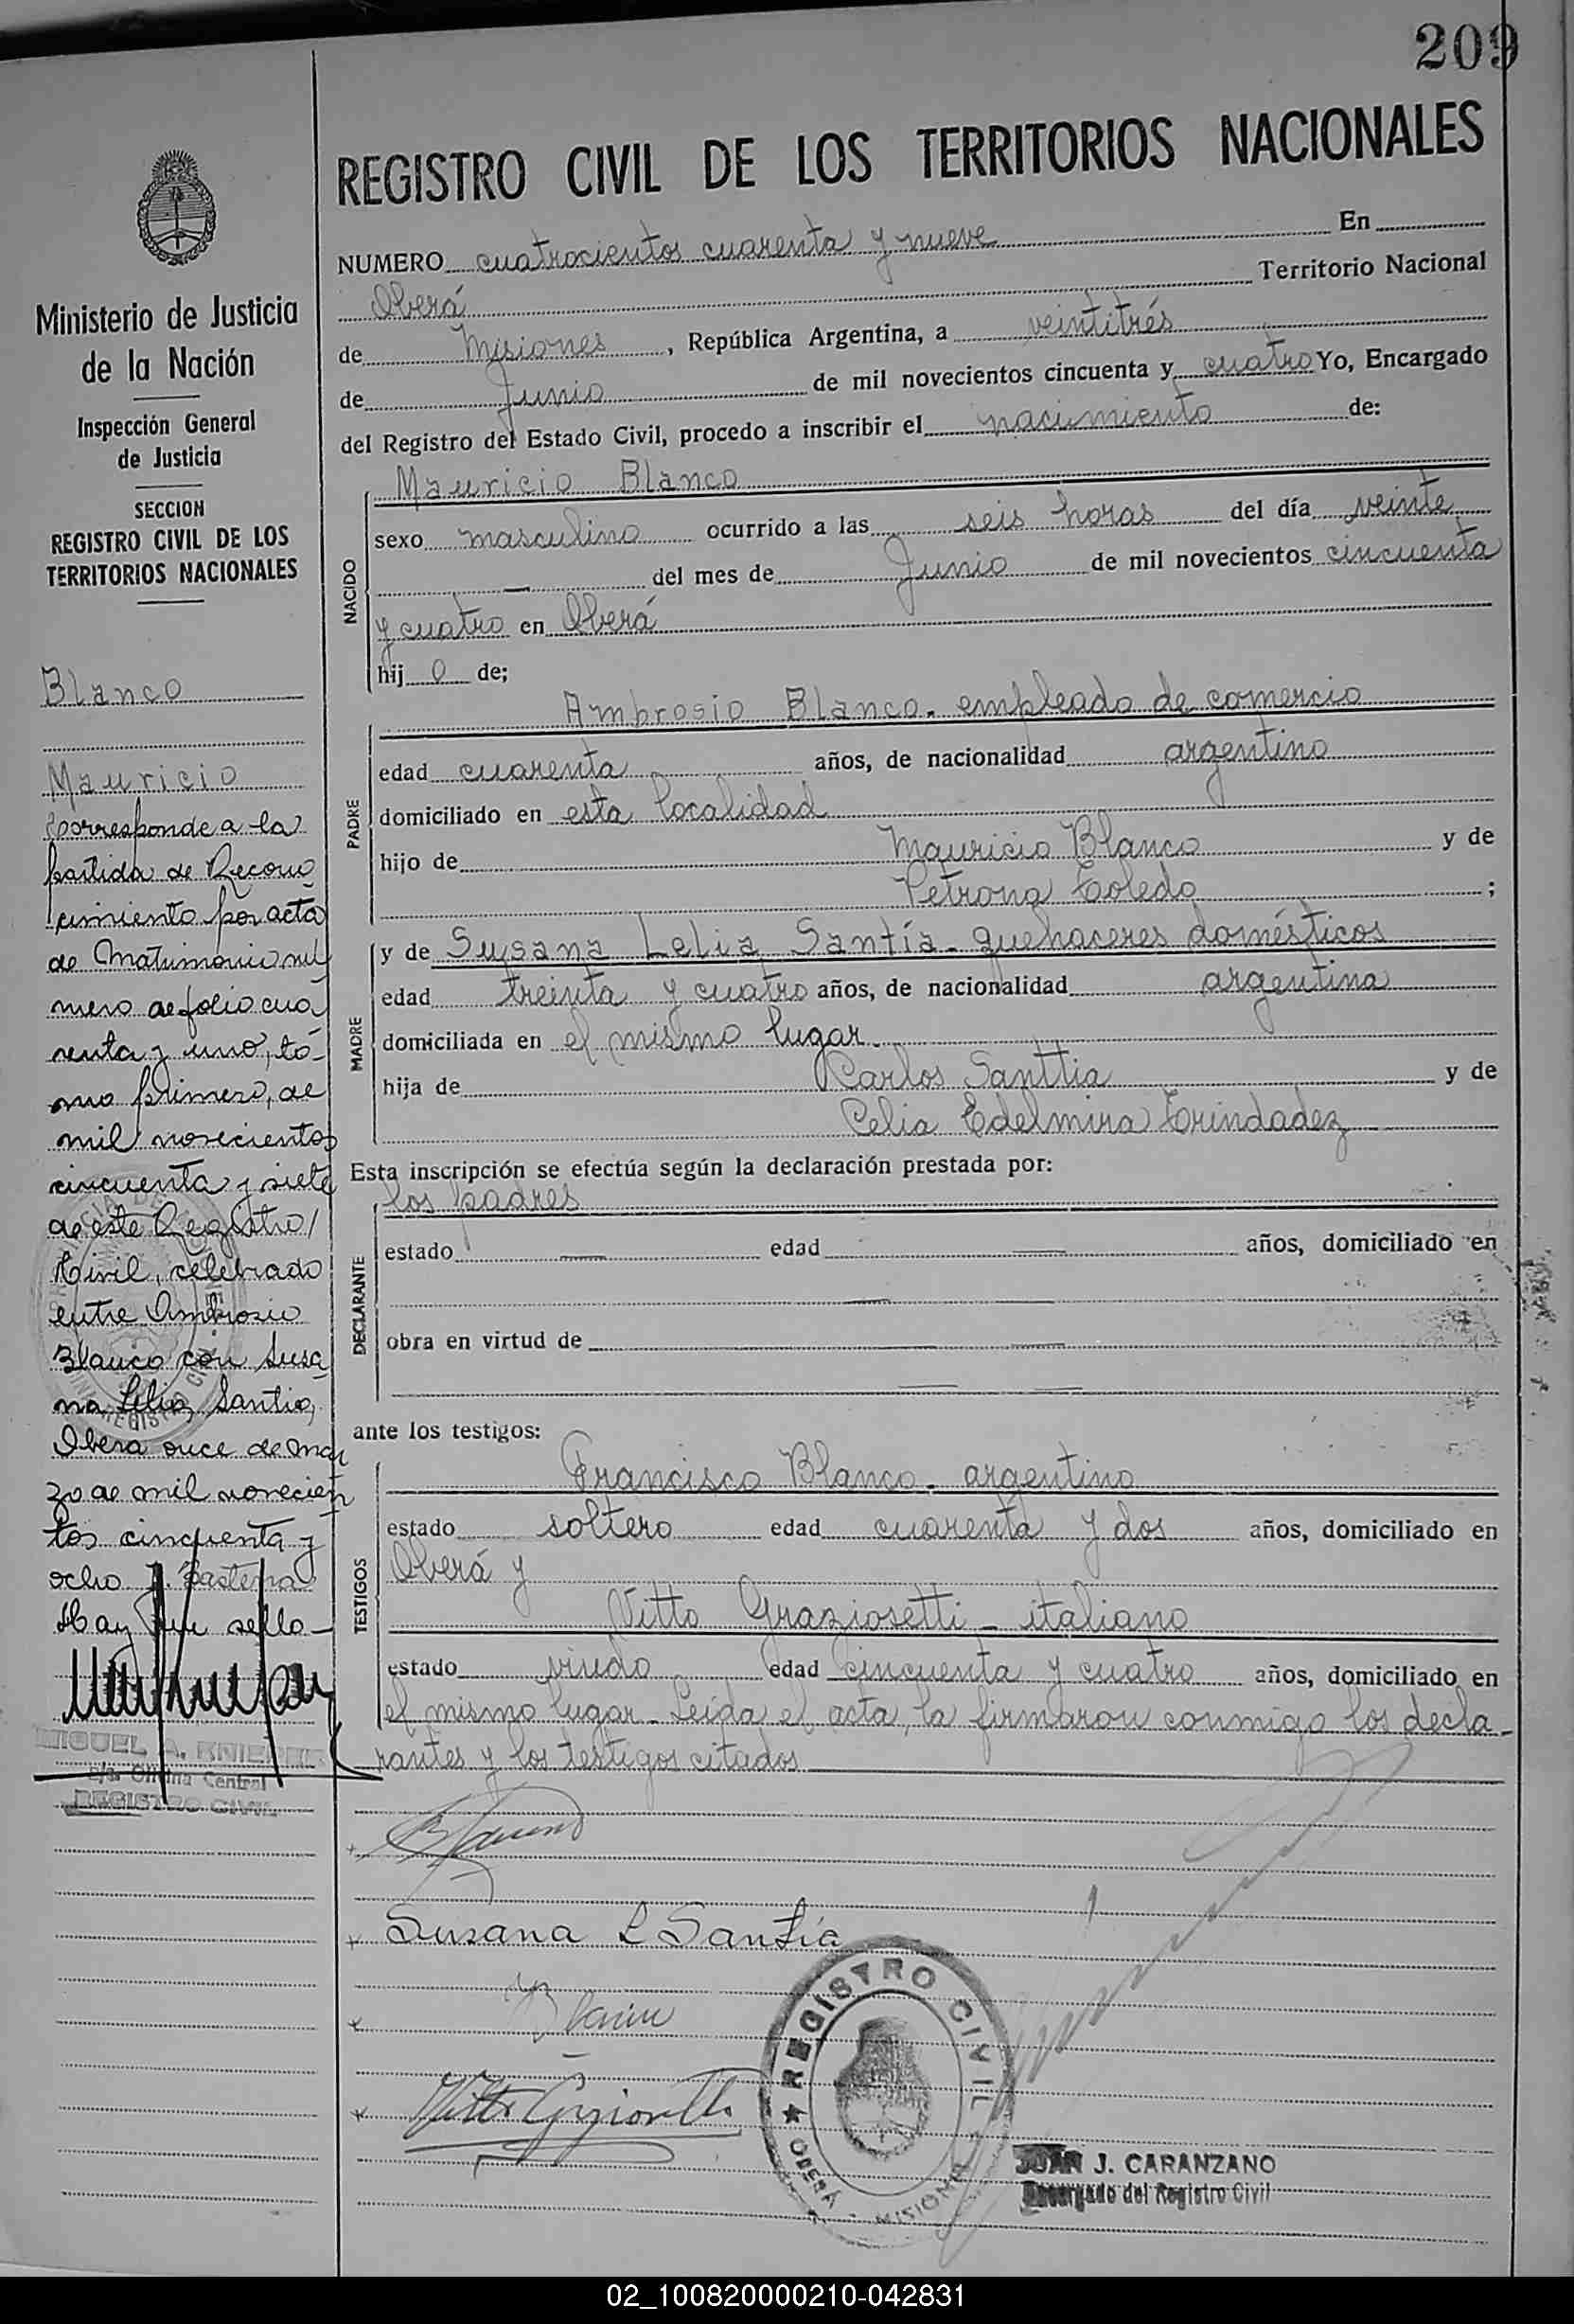 209
REGISTRO CIVIL DE LOS TERRITORIOS NACIONALES
Ministerio de Justicia
de la Nación
Inspección General
de Justicia
SECCION
REGISTRO CIVIL DE LOS
TERRITORIOS NACIONALES
Blanco
Mauricio
Corresponde a la
partida de Recono
cimiento por acta
de Matrimonio nú
mero de folio cua
renta y uno, to-
mo primero, de
mil novecientos
cincuenta y siete
de este Registro
Civil, celebrado
entre Ambrosio
Blanco con Susa
na Lelia Santia,
Obera once de Mar
zo de mil novecien
tos cincuenta y
ocho
Hay un sello-
MIGUEL A.
Oficina Central
REGISTRO CIVIL
NUMERO cuatrocientos cuarenta y nueve En
Oberá Territorio Nacional
de Misiones, República Argentina, a veintitrés
de Junio de mil novecientos cincuenta y cuatro Yo, Encargado
del Registro del Estado Civil, procedo a inscribir el nacimiento de:
NACIDO
Mauricio Blanco
sexo masculino ocurrido a las seis horas del día veinte
— del mes de Junio de mil novecientos cincuenta
y cuatro en Oberá
hij o de;
PADRE
Ambrosio Blanco. empleado de comercio
edad cuarenta años, de nacionalidad argentino
domiciliado en esta localidad
hijo de Mauricio Blanco y de
Petrona Toledo ;
MADRE
y de Susana Lelia Santía - quehaceres domésticos
edad treinta y cuatro años, de nacionalidad argentina
domiciliada en el mismo lugar.
hija de Carlos Santtia y de
Celia Edelmira Trindadez
Esta inscripción se efectúa según la declaración prestada por:
los padres
DECLARANTE
estado — edad — años, domiciliado en
obra en virtud de —
ante los testigos:
TESTIGOS
Francisco Blanco - argentino
estado soltero edad cuarenta y dos años, domiciliado en
Oberá y
Vitto Graziosetti - italiano
estado viudo edad cincuenta y cuatro años, domiciliado en
el mismo lugar - Leída el acta, la firmaron conmigo los decla-
rantes y los testigos citados
Susana L Santía
REGISTRO CIVIL
OBERÁ - MISIONES
JUAN J. CARANZANO
Encargado del Registro Civil
02_100820000210-042831